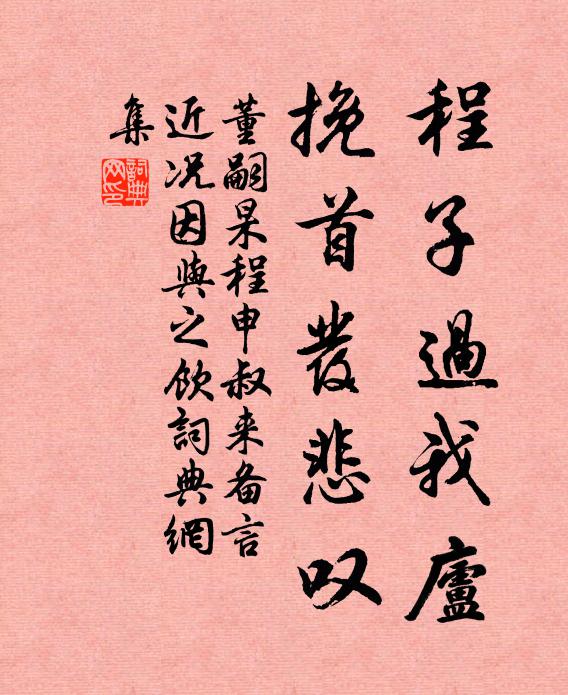 程子過我廬
挽首發悲叹
董嗣杲程申叔来备言
近况因與之飲詞典網
集
詞典網印